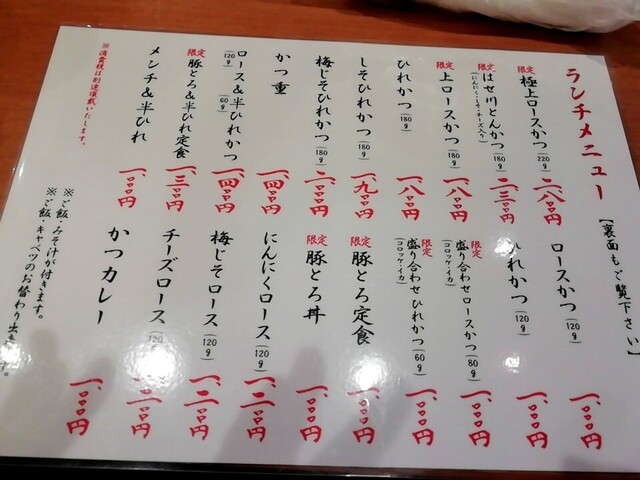 ランチメニュー
【裏面もご覧下さい】
限定 極上ロースかつ(220g) 二、八〇〇円
限定 はせ川とんかつ(180g) 二、三〇〇円
(にんにく・しそ・チーズ入り)
限定 上ロースかつ(180g) 一、八〇〇円
ひれかつ(180g) 一、八〇〇円
しそひれかつ(180g) 一、九〇〇円
梅じそひれかつ(180g) 二、〇〇〇円
かつ重 一、四〇〇円
ロース&半ひれかつ(120g)(60g) 一、四〇〇円
限定 豚とろ&半ひれ定食 一、三〇〇円
メンチ&半ひれ 一、〇〇〇円
※消費税は別途頂戴いたします。
ロースかつ(120g) 一、〇〇〇円
れかつ(120g) 一、〇〇〇円
限定 盛り合わせロースかつ(80g) 一、〇〇〇円
(コロッケ・イカ)
限定 盛り合わせひれかつ(60g) 一、〇〇〇円
(コロッケ・イカ)
限定 豚とろ定食 一、〇〇〇円
限定 豚とろ丼 一、〇〇〇円
にんにくロース(120g) 一、二〇〇円
梅じそロース(120g) 一、二〇〇円
チーズロース(120g) 一、二〇〇円
かつカレー 一、〇〇〇円
※ご飯・みそ汁が付きます。
※ご飯・キャベツのお替わり出ます。